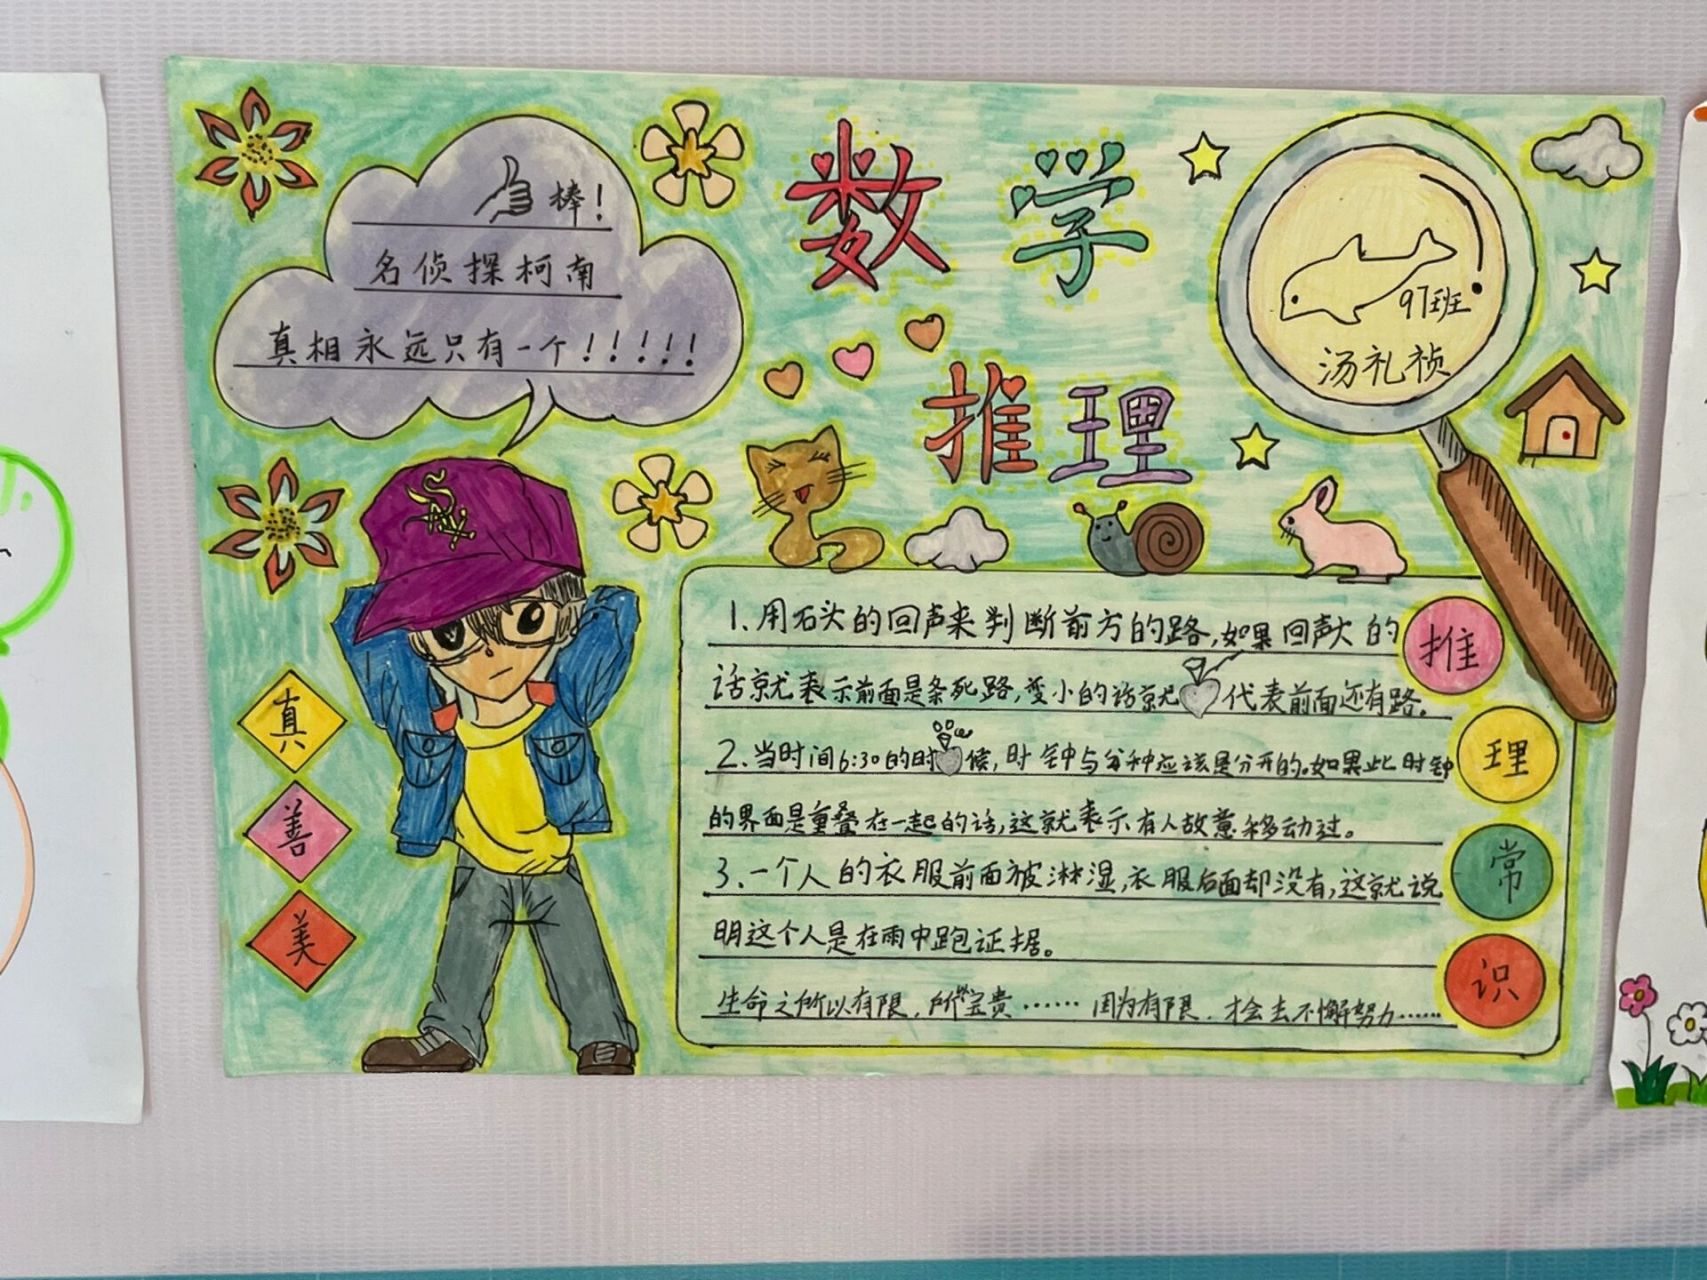 棒!
名侦探柯南
真相永远只有一个!!!!!!
数学
推理
97班
汤礼祯
真
善
美
1.用石头的回声来判断前方的路,如果回声大的
话就表示前面是条死路,变小的话就代表前面还有路。
2.当时间6:30的时候,时钟与分种应该是分开的。如果此时钟
的界面是重叠在一起的话,这就表示有人故意移动过。
3.一个人的衣服前面被淋湿,衣服后面却没有,这就说
明这个人是在雨中跑证据。
生命之所以有限,所以宝贵…… 因为有限,才会去不懈努力……
推
理
常
识